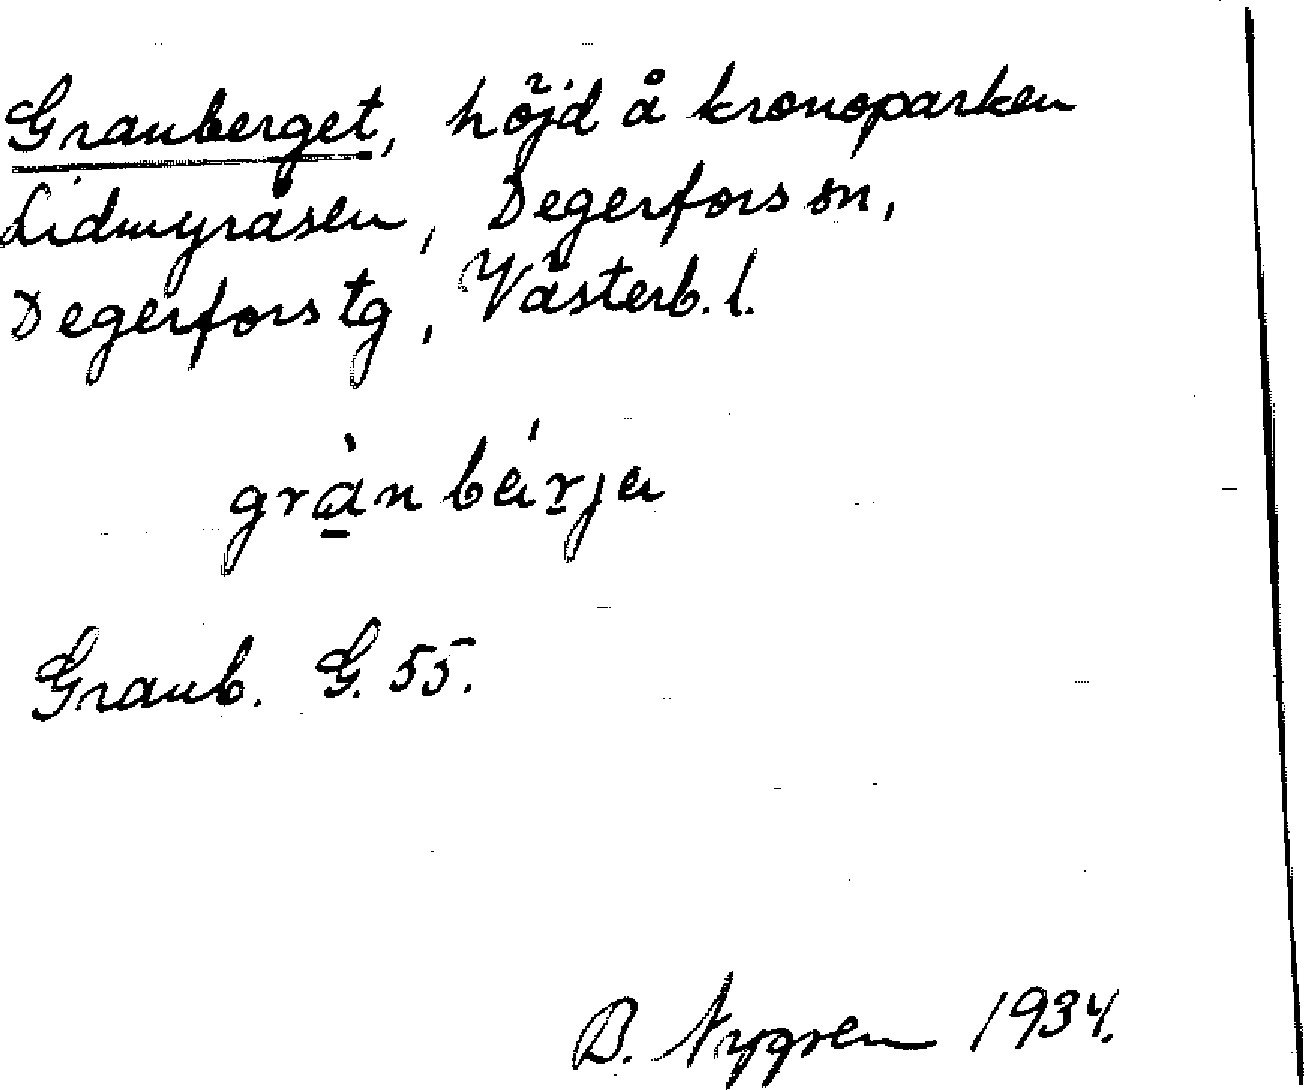 Granberget, höjd å kronoparken
Lidmyråsen, Degerfors sn,
Degerfors tg, Västerb. l.
grànbárja
Granb. G. 55.
B. Nygren 1934.